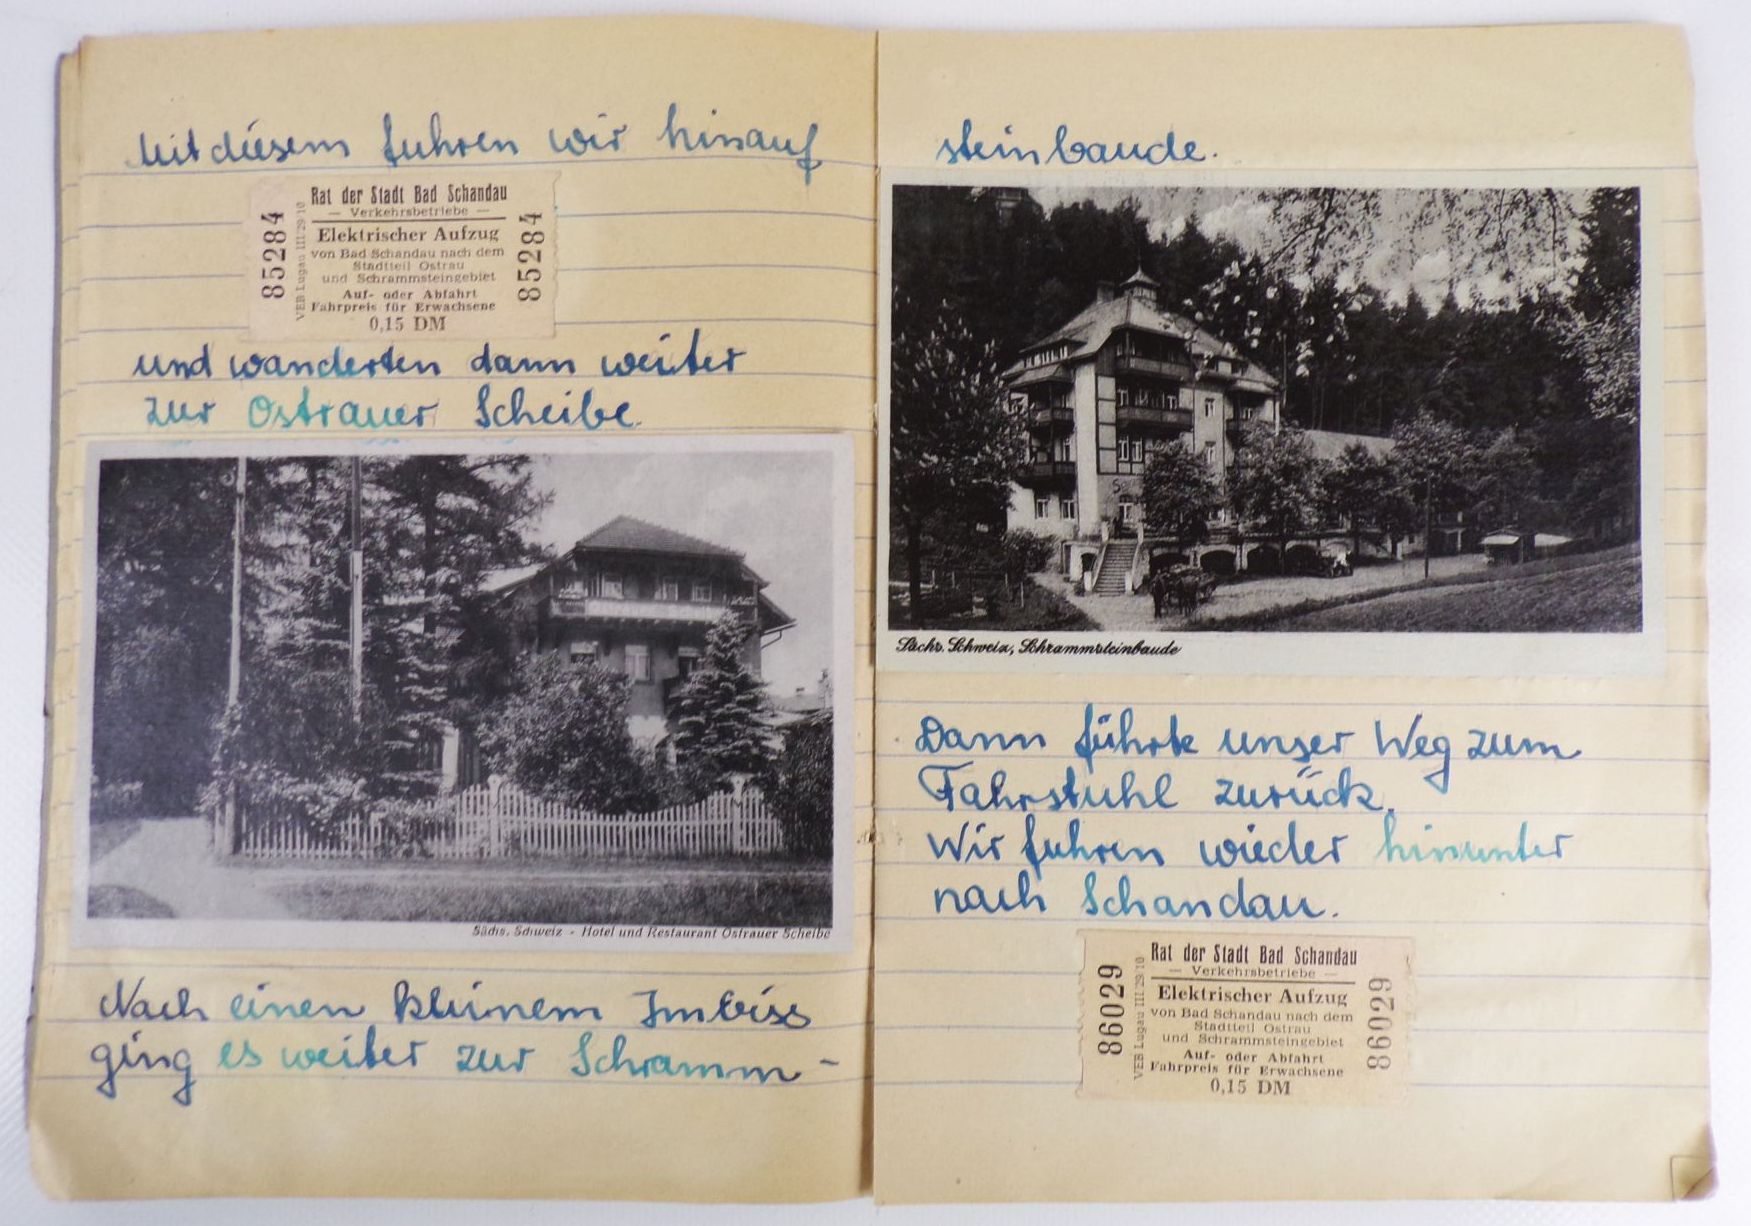 Mit diesem fuhren wir hinauf
Rat der Stadt Bad Schandau
— Verkehrsbetriebe —
Elektrischer Aufzug
von Bad Schandau nach dem
Stadtteil Ostrau
und Schrammsteingebiet
Auf- oder Abfahrt
Fahrpreis für Erwachsene
0,15 DM
85284
VEB Lugau III/29/10
85284
und wanderten dann weiter
zur Ostrauer Scheibe.
Sächs. Schweiz - Hotel und Restaurant Ostrauer Scheibe
Nach einen kleinem Imbiss
ging es weiter zur Schramm-
steinbaude.
Sächs. Schweiz, Schrammsteinbaude
Dann führte unser Weg zum
Fahrstuhl zurück.
Wir fuhren wieder hinunter
nach Schandau.
Rat der Stadt Bad Schandau
— Verkehrsbetriebe —
Elektrischer Aufzug
von Bad Schandau nach dem
Stadtteil Ostrau
und Schrammsteingebiet
Auf- oder Abfahrt
Fahrpreis für Erwachsene
0,15 DM
86029
VEB Lugau III/29/10
86029